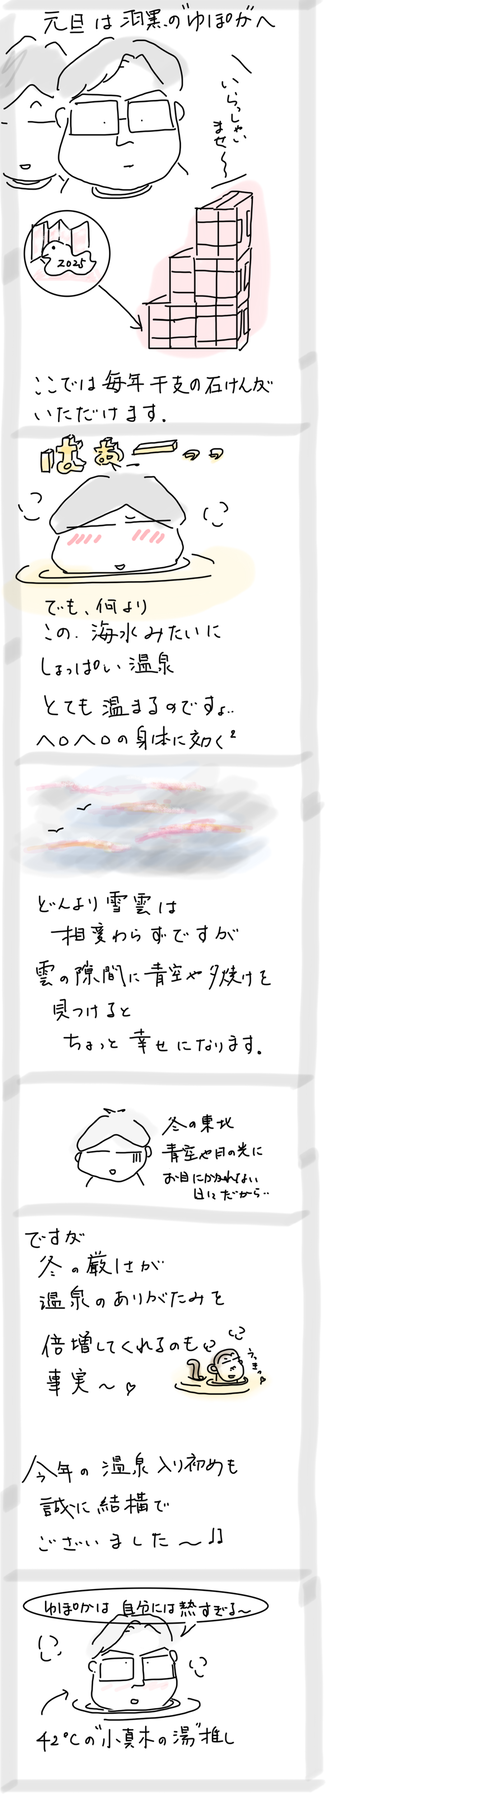 元旦は羽黒の"ゆぽか"へ
いらっしゃい
ませ〜
2025
ここでは毎年干支の石けんが
いただけます.
はぁーっっ
でも、何より
この、海水みたいに
しょっぱい温泉
とても温まるのですよ..
ヘロヘロの身体に効く²
どんより雪雲は
相変わらずですが
雲の隙間に青空や夕焼けを
見つけると
ちょっと幸せになります.
冬の東北
青空や日の光に
お目にかかれない
日々だから..
ですが
冬の厳しさが
温泉のありがたみを
倍増してくれるのも
事実〜♡
うきっ♡
今年の温泉入り初めも
誠に結構で
ございました〜♫
ゆぽかは自分には熱すぎる〜
42℃の"小真木の湯"推し